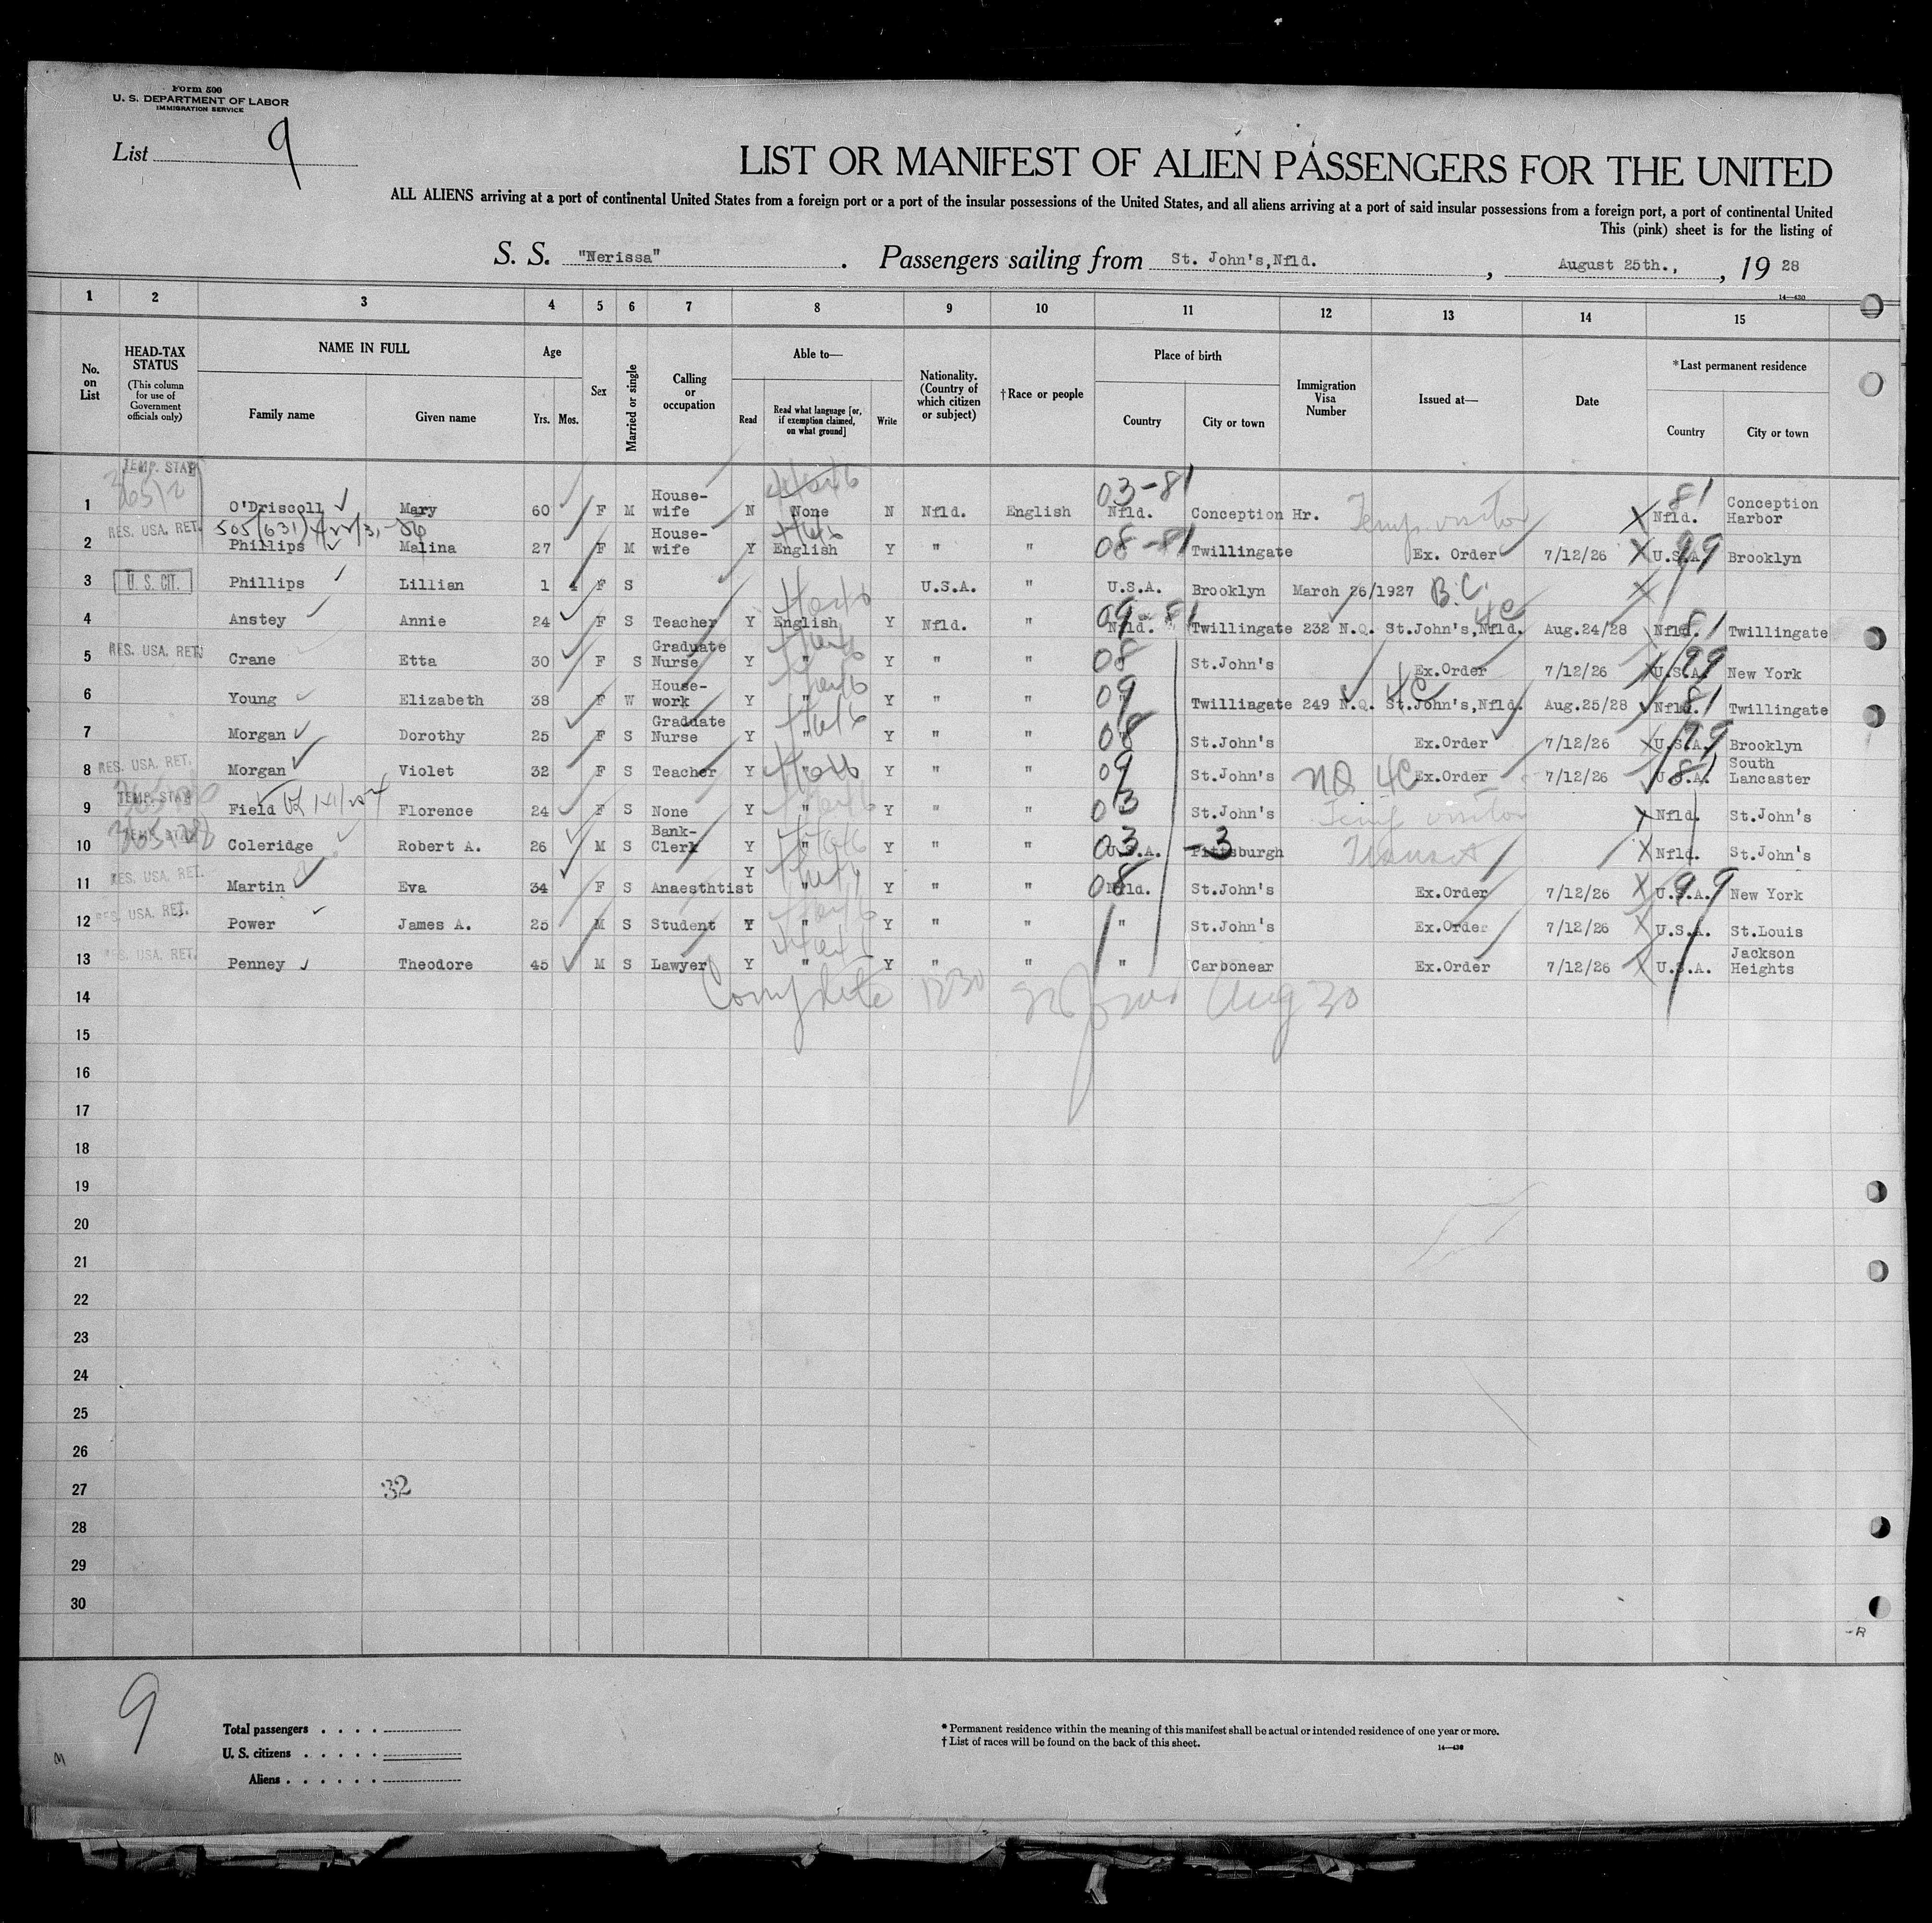 Form 500
U. S. DEPARTMENT OF LABOR
IMMIGRATION SERVICE
List 9
LIST OR MANIFEST OF ALIEN PASSENGERS FOR THE UNITED
ALL ALIENS arriving at a port of continental United States from a foreign port or a port of the insular possessions of the United States, and all aliens arriving at a port of said insular possessions from a foreign port, a port of continental United
This (pink) sheet is for the listing of
S. S. "Nerissa". Passengers sailing from St. John's,Nfld., August 25th., , 19 28
14—430
1 2 3 4 5 6 7 8 9 10 11 12 13 14 15
No. on List
HEAD-TAX STATUS
(This column for use of Government officials only)
NAME IN FULL
Family name
Given name
Age
Yrs. Mos.
Sex
Married or single
Calling or occupation
Able to—
Read
Read what language [or, if exemption claimed, on what ground]
Write
Nationality. (Country of which citizen or subject)
†Race or people
Place of birth
Country
City or town
Immigration Visa Number
Issued at—
Date
*Last permanent residence
Country
City or town
1 TEMP. STAY O'Driscoll Mary 60 F M House-wife N None N Nfld. English 03-81 Nfld. Conception Hr. Temp. visitor X Nfld. 81 Conception Harbor
2 RES. USA. RET. Phillips Malina 27 F M House-wife Y English Y " " 08-81 Twillingate Ex. Order 7/12/26 X U.S.A. 99 Brooklyn
3 U. S. CIT. Phillips Lillian 1 4 F S U.S.A. " U.S.A. Brooklyn March 26/1927 B.C. X
4 Anstey Annie 24 F S Teacher Y English Y Nfld. " 09-81 Nfld. Twillingate 232 N.Q. St.John's,Nfld. 4C Aug.24/28 Nfld. 81 Twillingate
5 RES. USA. RET. Crane Etta 30 F S Graduate Nurse Y " Y " " 08 St.John's Ex.Order 7/12/26 X U.S.A. 99 New York
6 Young Elizabeth 38 F W House-work Y " Y " " 09 Twillingate 249 N.Q. 4C St.John's,Nfld. Aug.25/28 Nfld. 81 Twillingate
7 Morgan Dorothy 25 F S Graduate Nurse Y " Y " " 08 St.John's Ex.Order 7/12/26 X U.S.A. 99 Brooklyn
8 RES. USA. RET. Morgan Violet 32 F S Teacher Y " Y " " 09 St.John's NQ 4C Ex.Order 7/12/26 U.S.A. 81 South Lancaster
9 TEMP. STAY Field Florence 24 F S None Y " Y " " 03 St.John's Temp visitor X Nfld. St.John's
10 Coleridge Robert A. 26 M S Bank-Clerk Y " Y " " 03 U.S.A. -3 Pittsburgh Transit X Nfld. St.John's
11 RES. USA. RET. Martin Eva 34 F S Anaesthtist Y " Y " " 08 Nfld. St.John's Ex.Order 7/12/26 X U.S.A. 99 New York
12 RES. USA. RET. Power James A. 25 M S Student Y " Y " " " St.John's Ex.Order 7/12/26 X U.S.A. St.Louis
13 RES. USA. RET. Penney Theodore 45 M S Lawyer Y " Y " " " Carbonear Ex.Order 7/12/26 X U.S.A. Jackson Heights
14 Complete 1230 Aug 30
15
16
17
18
19
20
21
22
23
24
25
26
27 32
28
29
30
-R
9
Total passengers . . . .
U. S. citizens . . . . .
Aliens . . . . . .
* Permanent residence within the meaning of this manifest shall be actual or intended residence of one year or more.
† List of races will be found on the back of this sheet.
14—430